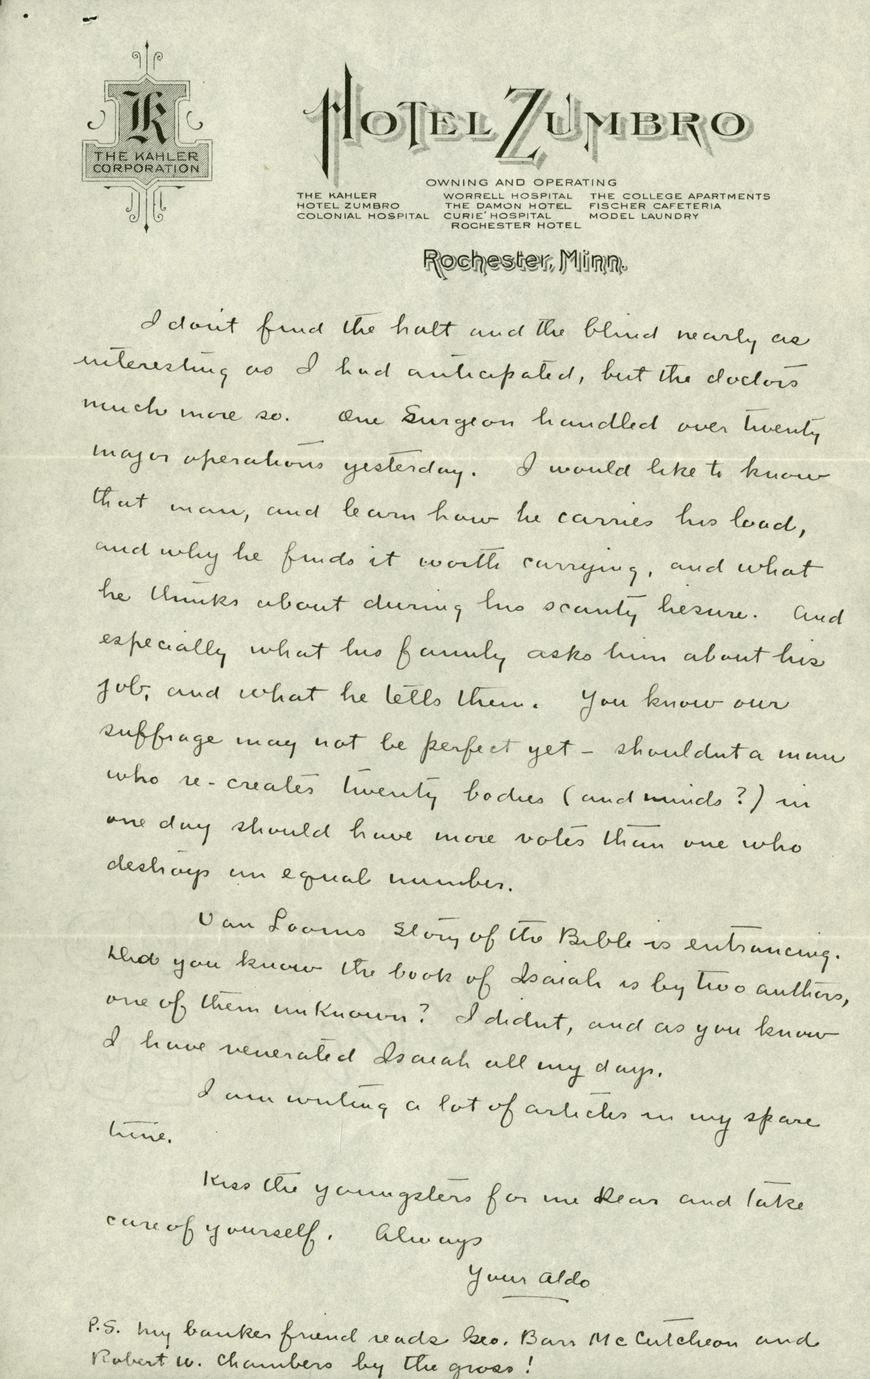 K
THE KAHLER
CORPORATION
HOTEL ZUMBRO
OWNING AND OPERATING
THE KAHLER WORRELL HOSPITAL THE COLLEGE APARTMENTS
HOTEL ZUMBRO THE DAMON HOTEL FISCHER CAFETERIA
COLONIAL HOSPITAL CURIE' HOSPITAL MODEL LAUNDRY
ROCHESTER HOTEL
Rochester, Minn.
I don't find the halt and the blind nearly as
interesting as I had anticipated, but the doctors
much more so. One Surgeon handled over twenty
major operations yesterday. I would like to know
that man, and learn how he carries his load,
and why he finds it worth carrying, and what
he thinks about during his scanty liesure. And
especially what his family asks him about his
job, and what he tells them. You know our
suffrage may not be perfect yet – shouldnt a man
who re-creates twenty bodies (and minds?) in
one day should have more votes than one who
destroys an equal number.
Van Loons Story of the Bible is entrancing.
Did you know the book of Isaiah is by two authors,
one of them unknown? I didnt, and as you know
I have venerated Isaiah all my days.
I am writing a lot of articles in my spare
time.
Kiss the youngsters for me Dear and take
care of yourself. Always
Your Aldo
P.S. My banker friend reads Geo. Barr McCutcheon and
Robert W. Chambers by the gross!